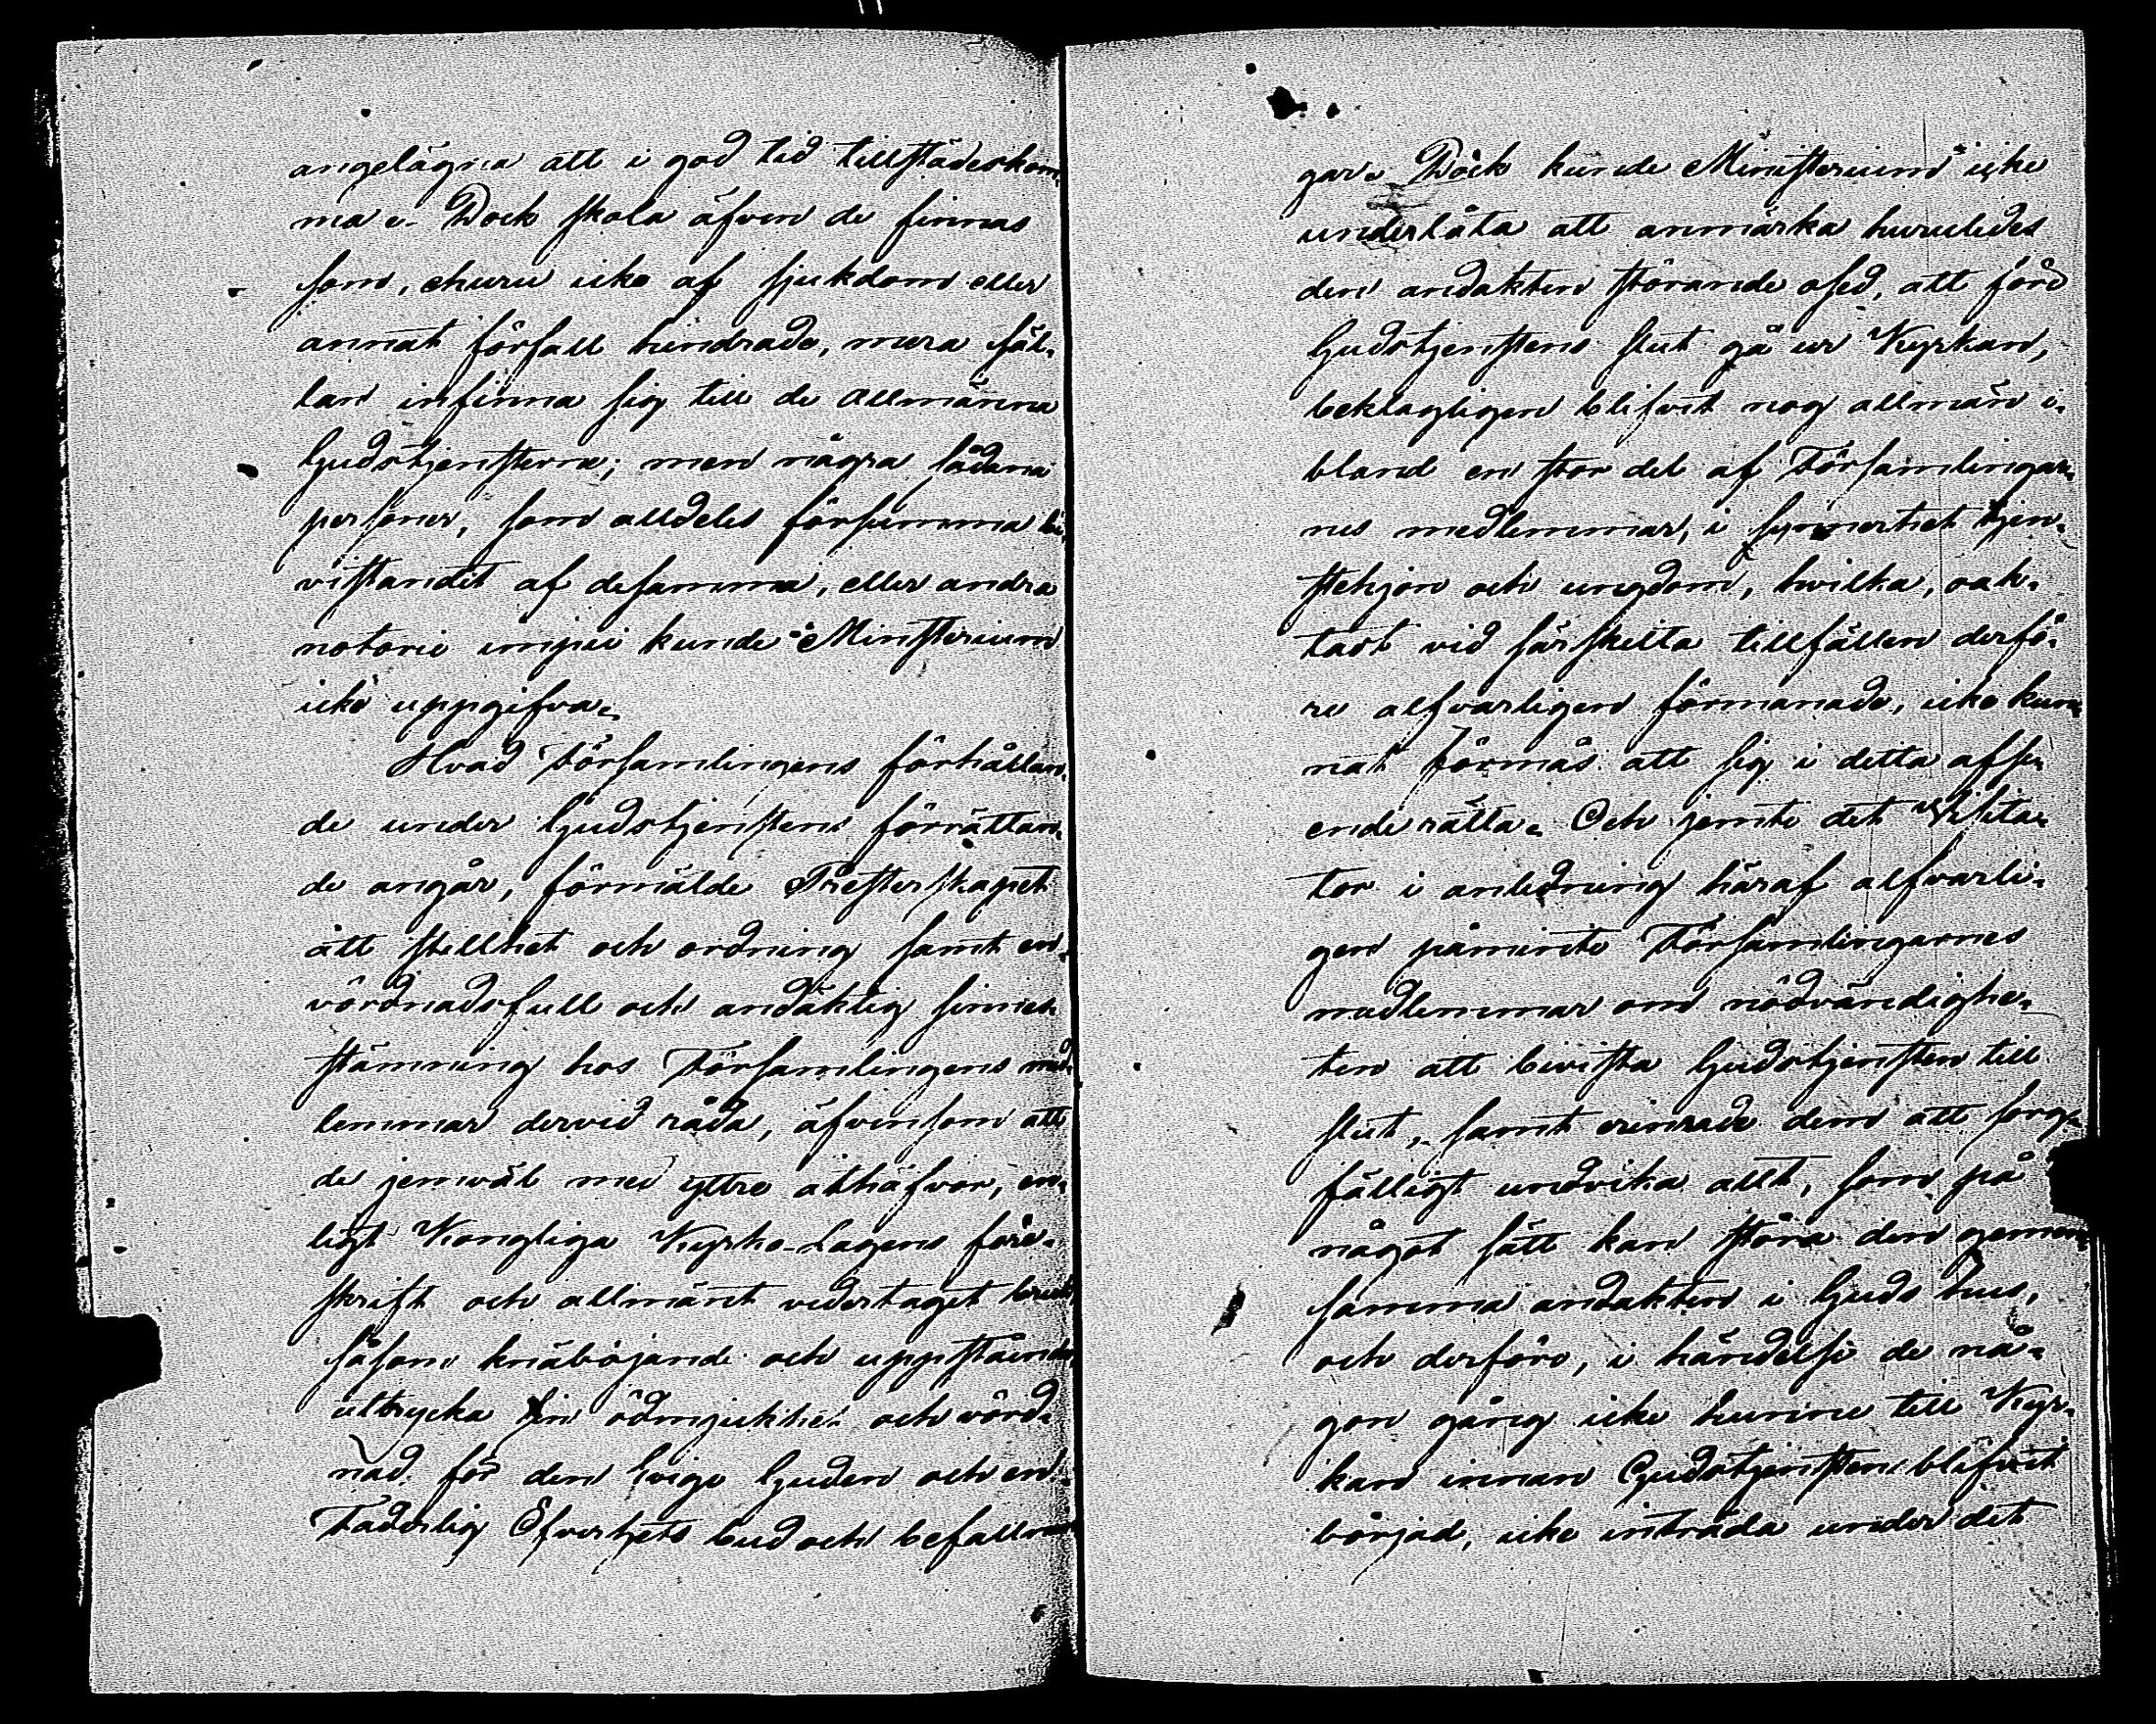 angelägna att i god tid tillstädeskom-
ma. Dock skola äfven de finnas
som, ehuru icke af sjukdom eller
annat förfall hindrade, mera säl-
lan infinna sig till de allmänna
Gudstjensterne; men några sådana
personer, som alldeles försumma bi-
vistandet af desamma, eller andra
notorie impii kunde Ministerium
icke uppgifva.
Hvad Församlingens förhållan-
de under Gudstjenstens förrättan-
de angår, förmälde Presterskapet
att stillhet och ordning samt en
vördnadsfull och andäktig sinnes-
stämning hos Församlingens med-
lemmar dervid råda, äfvensom att
de jemwäl med yttre åthäfvor, en-
ligt Kongliga Kyrko-Lagens före-
skrift och allmänt vedertaget bruk
såsom knäböjande och uppstående
uttrycka sin ödmjukhet och vörd-
nad för den helige Guden och en
Faderlig Öfverhets bud och befallnin-
gar. Dock kunde Ministerium icke
underlåta att anmärka huruledes
den andakten störande osed, att före
Gudstjenstens slut gå ur Kyrkan,
beklagligen blifvit nog allmän i-
bland en stor del af Församlingar-
nes medlemmar, i synnerhet tjen-
stehjon och ungdom, hvilka, oak-
tadt vid särskilta tillfällen derfö-
re alfvarligen förmanade, icke kun-
nat förmås att sig i detta afse-
ende rätta. Och jemte det Visita-
tor i anledning häraf alfvarli-
gen påminte Församlingarnes
medlemmar om nödvändighe-
ten att bevista Gudstjensten till
slut, samt erinrade dem att sorg-
fälligt undvika allt, som på
något sätt kan störa den gemen-
samma andakten i Guds hus,
och derföre, i händelse de nå-
gon gång icke hunne till Kyr-
kan innan Gudstjensten blifvit
börjad, icke inträda under det